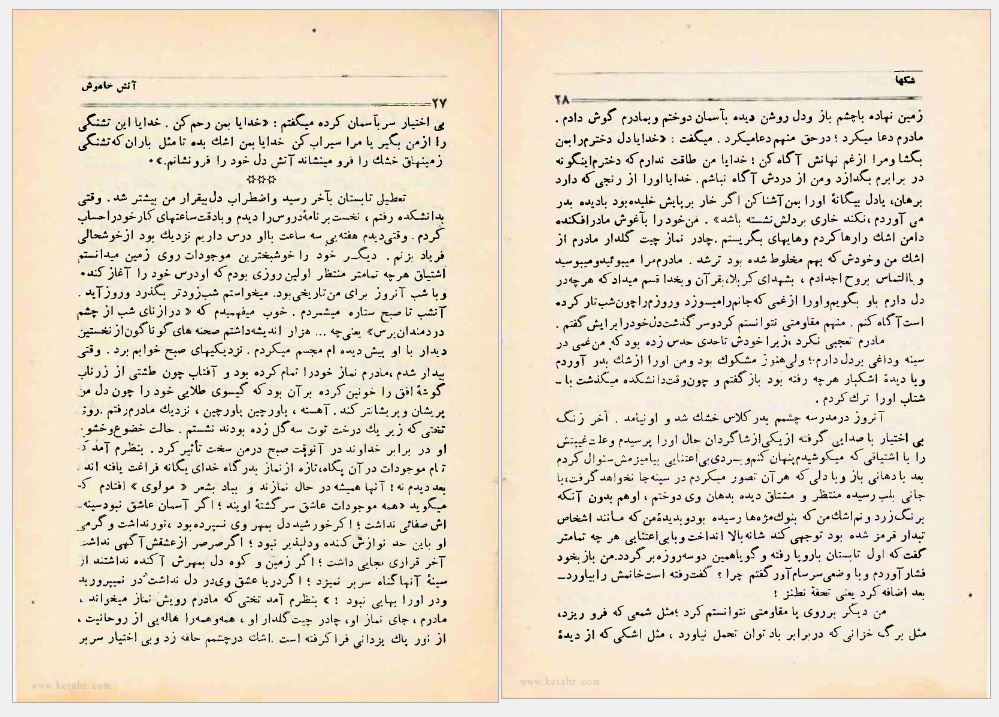 آتش خاموش
۲۷
بی اختیار سر بآسمان کرده میگفتم : «خدایا بمن رحم کن . خدایا این تشنگی
را ازمن بگیر یا مرا سیراب کن خدایا بمن اشك بده تا مثل باران که تشنگی
زمینهای خشك را فرو مینشاند آتش دل خود را فرو نشانم.» .
☆☆☆
تعطیل تابستان بآخر رسید و اضطراب دل بیقرار من بیشتر شد . وقتی
بدانشکده رفتم ، نخست برنامهٔ دروس را دیدم و بادقت ساعتهای کار خود را حساب
کردم . وقتی دیدم هفته یی سه ساعت بااو درس داریم نزدیك بود ازخوشحالی
فریاد بزنم . دیگر خود را خوشبخترین موجودات روی زمین میدانستم
اشتیاق هرچه تمامتر منتظر اولین روزی بودم که او درس خود را آغاز کند.
و با شب آنروز برای من تاریخی بود. میخواستم شب زودتر بگذرد و روز آید .
آنشب تا صبح ستاره میشمردم . خوب میفهمیدم که « درازنای شب از چشم
دردمندان پرس» یعنی چه ... هزار اندیشه داشتم صحنه های گوناگون از نخستین
دیدار با او پیش دیده ام مجسم میکردم . نزدیکیهای صبح خوابم برد . وقتی
بیدار شدم ،مادرم نماز خود را تمام کرده بود و آفتاب چون طشتی از زر ناب
گوشهٔ افق را خونین کرده بر آن بود که گیسوی طلایی خود را چون دل من
پریشان و پریشانتر کند . آهسته ، پاورچین پاورچین ، نزدیك مادرم رفتم .روی
تختی که زیر یك درخت توت سه گل زده بودند نشستم . حالت خضوع و خشوع
او در برابر خداوند در آنوقت صبح درمن سخت تأثیر کرد . بنظرم آمد که
تمام موجودات در آن پگاه،تازه از نماز بدرگاه خدای یگانه فراغت یافته اند .
بعد دیدم نه! آنها همیشه در حال نمازند و بیاد شعر « مولوی » افتادم که
میگوید «همه موجودات عاشق سرگشتهٔ اویند ؛ اگر آسمان عاشق نبود سینه ـ
اش صفائی نداشت ؛ اگر خورشید دل بمهر وی نسپرده بود ،نور نداشت و گرمی
او باین حد نوازش کننده و دلپذیر نبود ؛ اگر صرصر از عشقش آگهی نداشت
آخر قراری بجایی داشت ؛ اگر زمین و کوه دل بمهرش آکنده نداشتند از
سینهٔ آنها گیاه سر بر نمیزد ؛ اگر دریا عشق وی در دل نداشت در نمیپرورید
و در او را بهایی نبود ! » بنظرم آمد تختی که مادرم رویش نماز میخواند ،
مادرم ، جای نماز او، چادر چیت گلدار او ، همه و همه را هاله یی از روحانیت ،
از نور پاك یزدانی فرا گرفته است .اشك در چشمم حلقه زد و بی اختیار سر بر
www.ketabz.com
شکها
۲۸
زمین نهاده باچشم باز و دل روشن دیده بآسمان دوختم و بمادرم گوش دادم .
مادرم دعا میکرد ؛ در حق منهم دعا میکرد . میگفت : «خدایا دل دخترم را بمن
بگشا و مرا از غم نهانش آگاه کن ! خدایا من طاقت ندارم که دخترم اینگونه
در برابرم بگدازد و من از دردش آگاه نباشم . خدایا او را از رنجی که دارد
برهان، یادل بیگانهٔ او را بمن آشنا کن اگر خار بر پایش خلیده بود بادیده بدر
می آوردم ،نکند خاری بر دلش نشسته باشد» . من خود را بآغوش مادر افکنده
دامن اشك را رها کردم و هایهای بگریستم .چادر نماز چیت گلدار مادرم از
اشك من و خودش که بهم مخلوط شده بود تر شد . مادرم مرا میبوئید و میبوسید
و با التماس بروح اجدادم ، بشهدای کربلا،بقرآن و بخدا قسم میداد که هرچه در
دل دارم باو بگویم و او را از غمی که جانم را میسوزد و روزم را چون شب تار کرده
است آگاه کنم . منهم مقاومتی نتوانستم کرد و سر گذشت دل خود را برایش گفتم .
مادرم تعجبی نکرد ،زیرا خودش تا حدی حدس زده بود که من غمی در
سینه و داغی بر دل دارم،؛ ولی هنوز مشکوك بود و من او را از شك بدر آوردم
و با دیدهٔ اشکبار هرچه رفته بود باز گفتم و چون وقت دانشکده میگذشت با ـ
شتاب او را ترك کردم .
آنروز در مدرسه چشمم بدر کلاس خشك شد و او نیامد . آخر زنگ
بی اختیار با صدایی گرفته از یکی از شاگردان حال او را پرسیدم و علت غیبتش
را با اشتیاقی که میکوشیدم پنهان کنم و بسردی بی اعتنایی بیامیزمش سئوال کردم
بعد بادهانی باز و با دلی که هر آن تصور میکردم در سینه جا نخواهد گرفت،با
جانی بلب رسیده منتظر و مشتاق دیده بدهان وی دوختم ، او هم بدون آنکه
برنگ زرد و نم اشك من که بنوك مژه ها رسیده بود و بدیدهٔ من که مانند اشخاص
تبدار قرمز شده بود توجهی کند شانه بالا انداخت و با بی اعتنایی هر چه تمامتر
گفت که اول تابستان باروپا رفته و گویا همین دوسه روزه بر گردد. من باز بخود
فشار آوردم و با وضعی سرسام آور گفتم چرا ؟ گفت رفته است خانمش را بیاورد ـ
بعد اضافه کرد یعنی تحفهٔ نطنز !
من دیگر بر روی پا مقاومتی نتوانستم کرد ؛مثل شمعی که فرو ریزد،
مثل برگ خزانی که در برابر باد توان تحمل نیاورد ، مثل اشکی که از دیدهٔ
www.ketabz.com